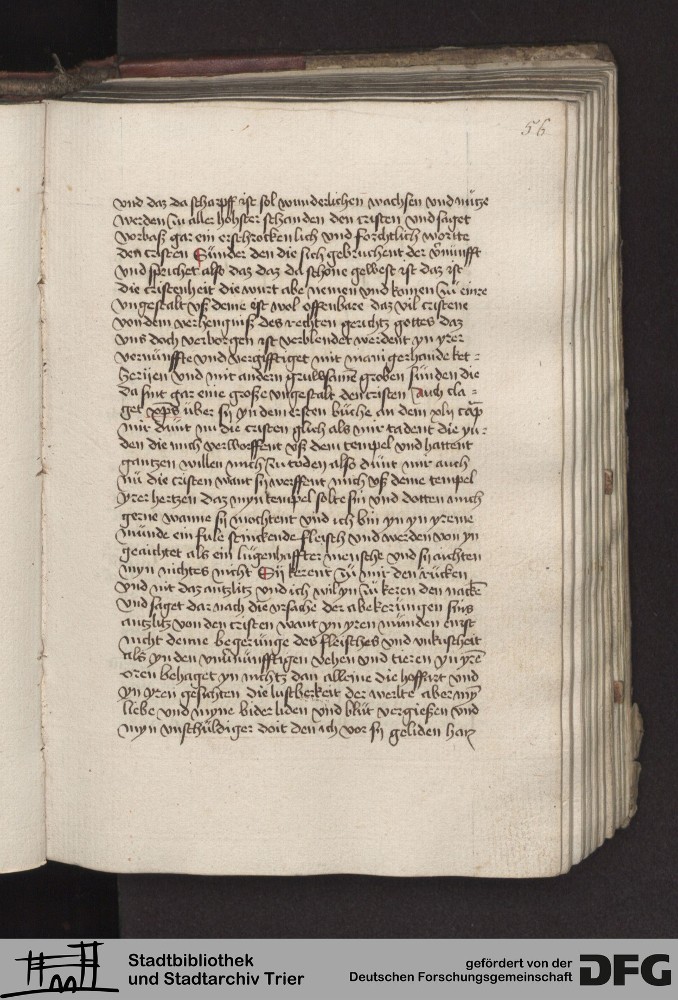 56
vnd daz da scharpff ist sol wunderlichen wachsen vnd nutze
werden zu aller hohster schanden den cristen vnd saget
vorbaß gar ein erschrockenlich vnd forchtlich worte
den cristen Sunder den die sich gebruchent der v̄nunfft
vnd sprichet also daz daz da schone gewest ist daz ist
die cristenheit die wurt abe nemen vnd komen zu eine
vngestalt vß deme ist wol offenbare daz vil cristene
von dem verhengniß des rechten gerichtz gottes daz
vns doch verborgen ist verblendet werdent yn yrer
vernunffte vnd vergifftiget mit manigerhande ket=
zerijen vnd mit andern gruwsame groben sunden die
da sint gar eine große vngestalt den cristen Auch cla=
get xp̄s über sij yn dem ersten buche an dem xlij cap̄
mir dunt nu die cristen glich als mir tadent die yu=
den die mich verworffent vß dem tempel vnd hattent
gantzen willen mich zu toden also dunt mir auch
nu die cristen want sij werffent mich vß deme tempel
yrer hertzen daz myn tempel solte sin vnd dotten mich
gerne wanne sij mochtent vnd ich bin yn yn yreme
munde ein fule stinckende fleisch vnd werden von yn
geaichtet als ein lugenhaffter mensche vnd sij aichten
myn nichtes nicht Sij kerent zu mir den rucken
vnd nit daz antzlitz vnd ich wil yn zu keren den nacke
vnd saget dar nach die vrsache der abekerungen sins
antzlitz von den cristen want yn yren munden enist
nicht denne begerunge des fleisches vnd vnkuscheit
als yn den vnuernunfftigen vehen vnd tieren yn yre
oren behaget yn nichtz dan alleine die hoffart vnd
yn yren gesichten die lustberkeit der werlte aber my
liebe vnd myne bider liden vnd blut vergießen vnd
myn vnschuldiger doit den ich vor sij geliden han
Stadtbibliothek
und Stadtarchiv Trier
gefördert von der
Deutschen Forschungsgemeinschaft
DFG